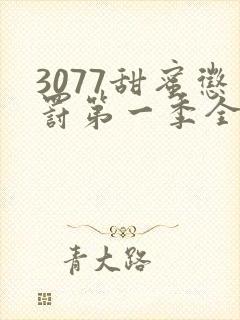 3077甜蜜懲
罰第一季全
青大路